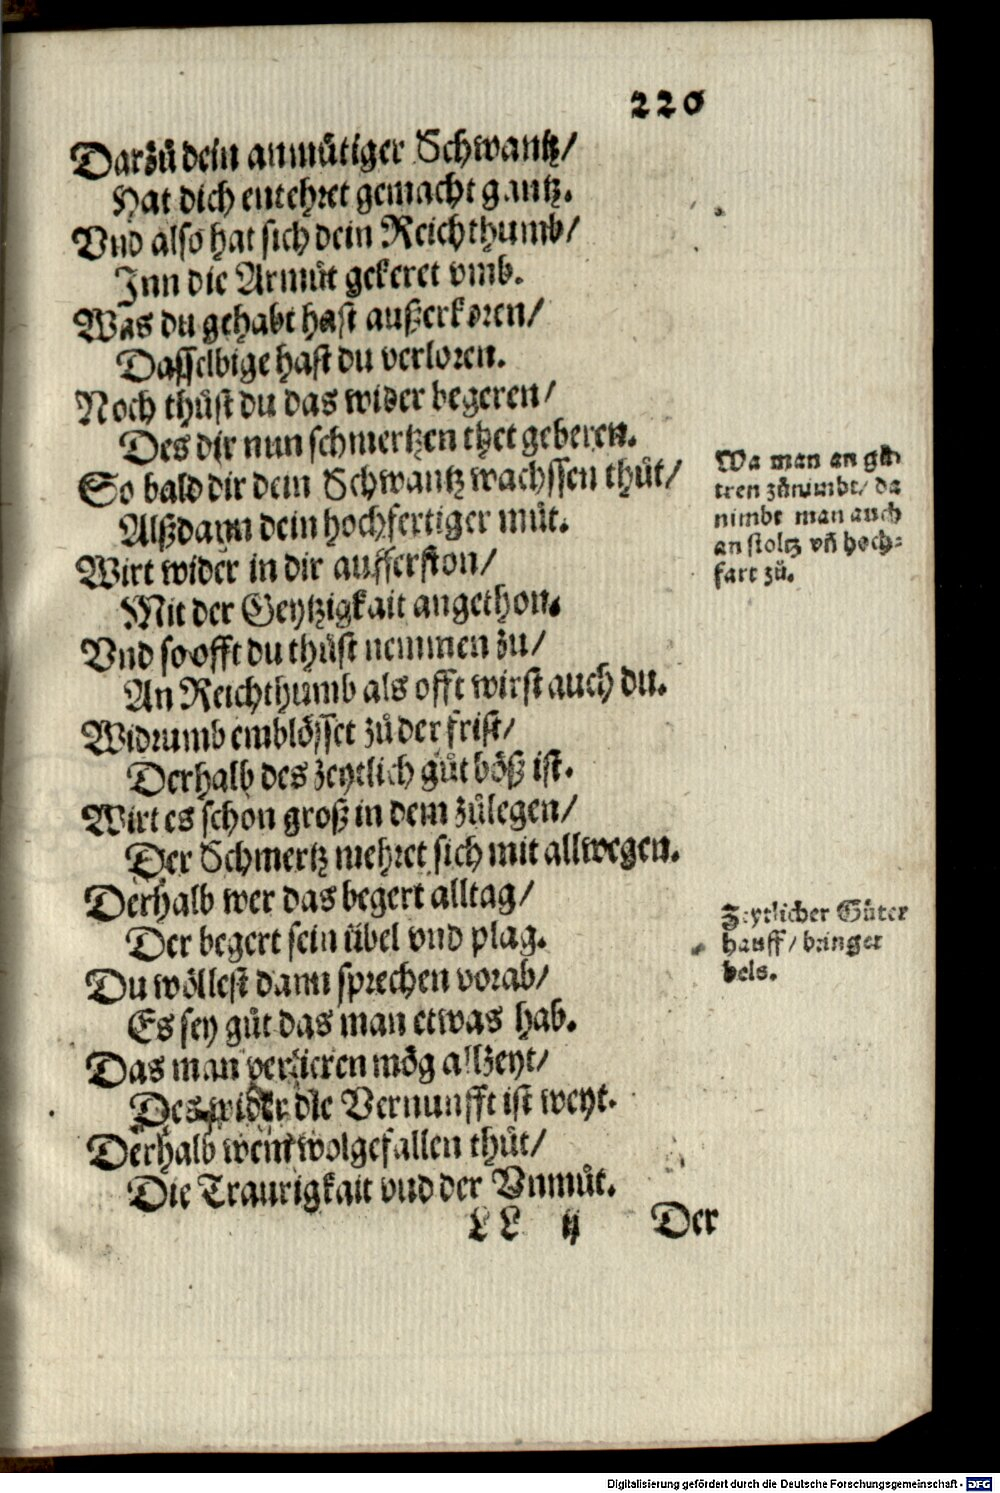 220
Darzů dein anmůtiger Schwantz/
Hat dich entehret gemacht gantz.
Vnd also hat sich dein Reichthumb/
Inn die Armůt gekeret vmb.
Was du gehabt hast außerkoren/
Dasselbige hast du verloren.
Noch thůst du das wider begeren/
Des dir nun schmertzen thet geberen.
So bald dir dein Schwantz wachssen thůt/
Alßdann dein hochfertiger můt.
Wirt wider in dir aufferston/
Mit der Geytzigkait angethon.
Vnd so offt du thůst nemmen zu/
An Reichthumb als offt wirst auch du.
Widrumb emblösset zů der frist/
Derhalb des zeytlich gůt böß ist.
Wirt es schon groß in dem zůlegen/
Der Schmertz mehret sich mit allwegen.
Derhalb wer das begert alltag/
Der begert sein übel vnd plag.
Du wöllest dann sprechen vorab/
Es sey gůt das man etwas hab.
Das man verlieren mög allzeyt/
Des wider die Vernunfft ist weyt.
Derhalb wem wolgefallen thůt/
Die Traurigkait vnd der Vnmůt.
LL ij Der
Wa man an gůtren
zůnimbt/ da
nimbt man auch
an stoltz vñ hoch-
fart zů.
Zeytlicher Güter
hauff/ bringet
bels.
Digitalisierung gefördert durch die Deutsche Forschungsgemeinschaft - DFG